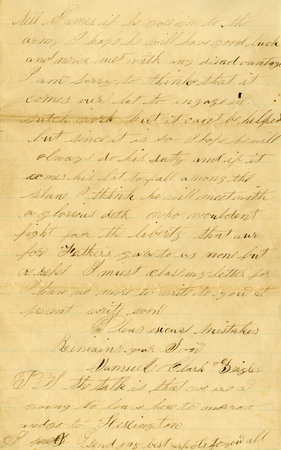 tell Eamer if he goes in to the
army I hope he will have good luck
and never met with any disadvantage
I am sorry to think that it
comes our lot to engage in
such work but it cant be helped
but since it is so I hope he will
always do his duty and if it
comes his lot to fall among the
slane I think he will meet with
a glorious deth who wouldent
fight for the liberty that our
for Fathers gave to us none but
a rebs I must close my letter for
I have no more to write to you at
present write soon
Excuse mistakes
Remains your Son
Samuel Clark Zeigler
P S the talk is that we are a
going to leave here to morrow
and go to
I send my best respects to you all